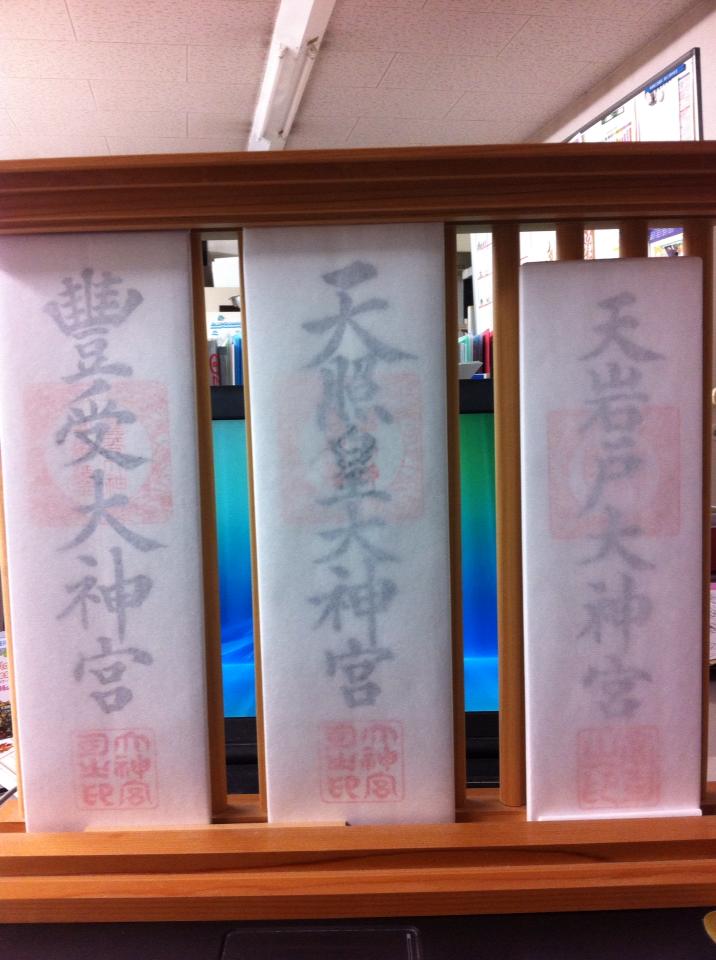 天岩戸大神宮
天照皇大神宮
大神宮
司之印
豐受大神宮
大神宮
司之印